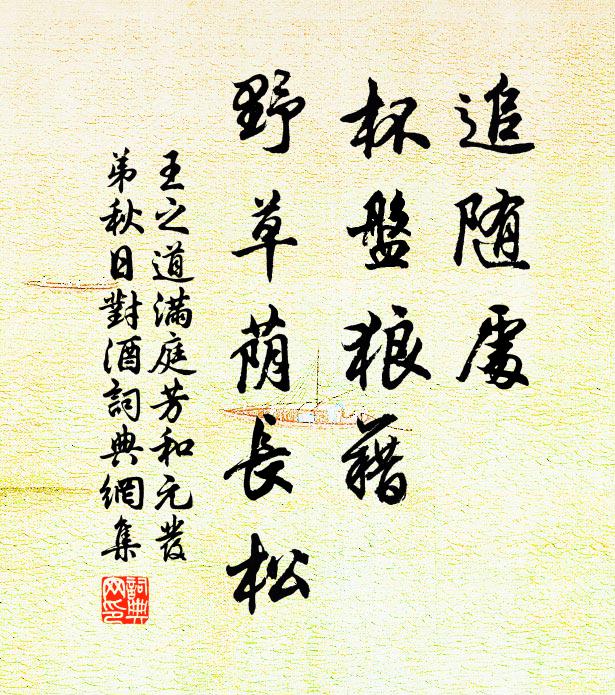 追随處
杯盤狼藉
野草蔭長松
王之道满庭芳和元發
弟秋日對酒詞典網集
詞典網印